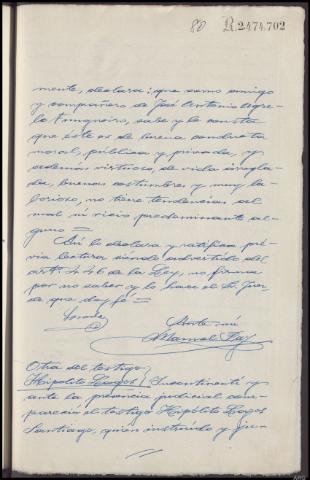 80 R.2474.702
mente, declara: que como amigo
y compañero de José Antonio
sabe y le consta
que éste es de buena conducta
moral, pública y privada, y
además virtuoso, de vida arregla-
da, buenas costumbres y muy la-
borioso, no tiene tendencias al
mal ni vicio predominante al-
guno =
Así lo declara y ratifica pré-
via lectura siendo advertido del
artº 446 de la Ley, no firma
por no saber y lo hace el Sr Juez
de que doy fe =
Ante mí
Manuel
Otra del testigo
Hipólito Lagos / Incontinenti y
ante la presencia judicial com-
pareció el testigo Hipólito Lagos
Santiago, quien instruido y ju-